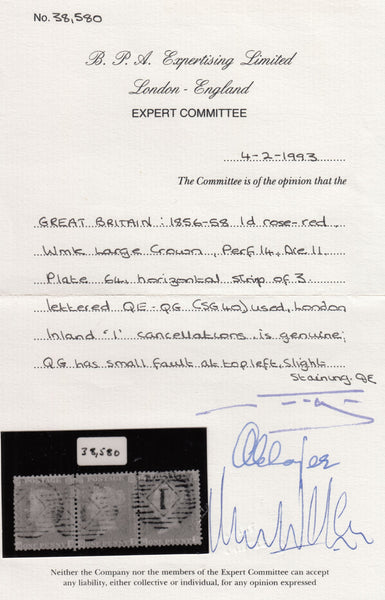 No. 38,580
B. P. A. Expertising Limited
London - England
EXPERT COMMITTEE
4-2-1993
The Committee is of the opinion that the
GREAT BRITAIN: 1856-58 1d rose-red,
Wmk Large Crown, Perf. 14, Die 11
Plate 64, horizontal strip of 3
lettered QE-QG (SG 40) used, London
Inland '1' cancellations is genuine;
QG has small fault at top left, Slight
Staining QE
38,580
POSTAGE
ONE PENNY
1
Neither the Company nor the members of the Expert Committee can accept
any liability, either collective or individual, for any opinion expressed